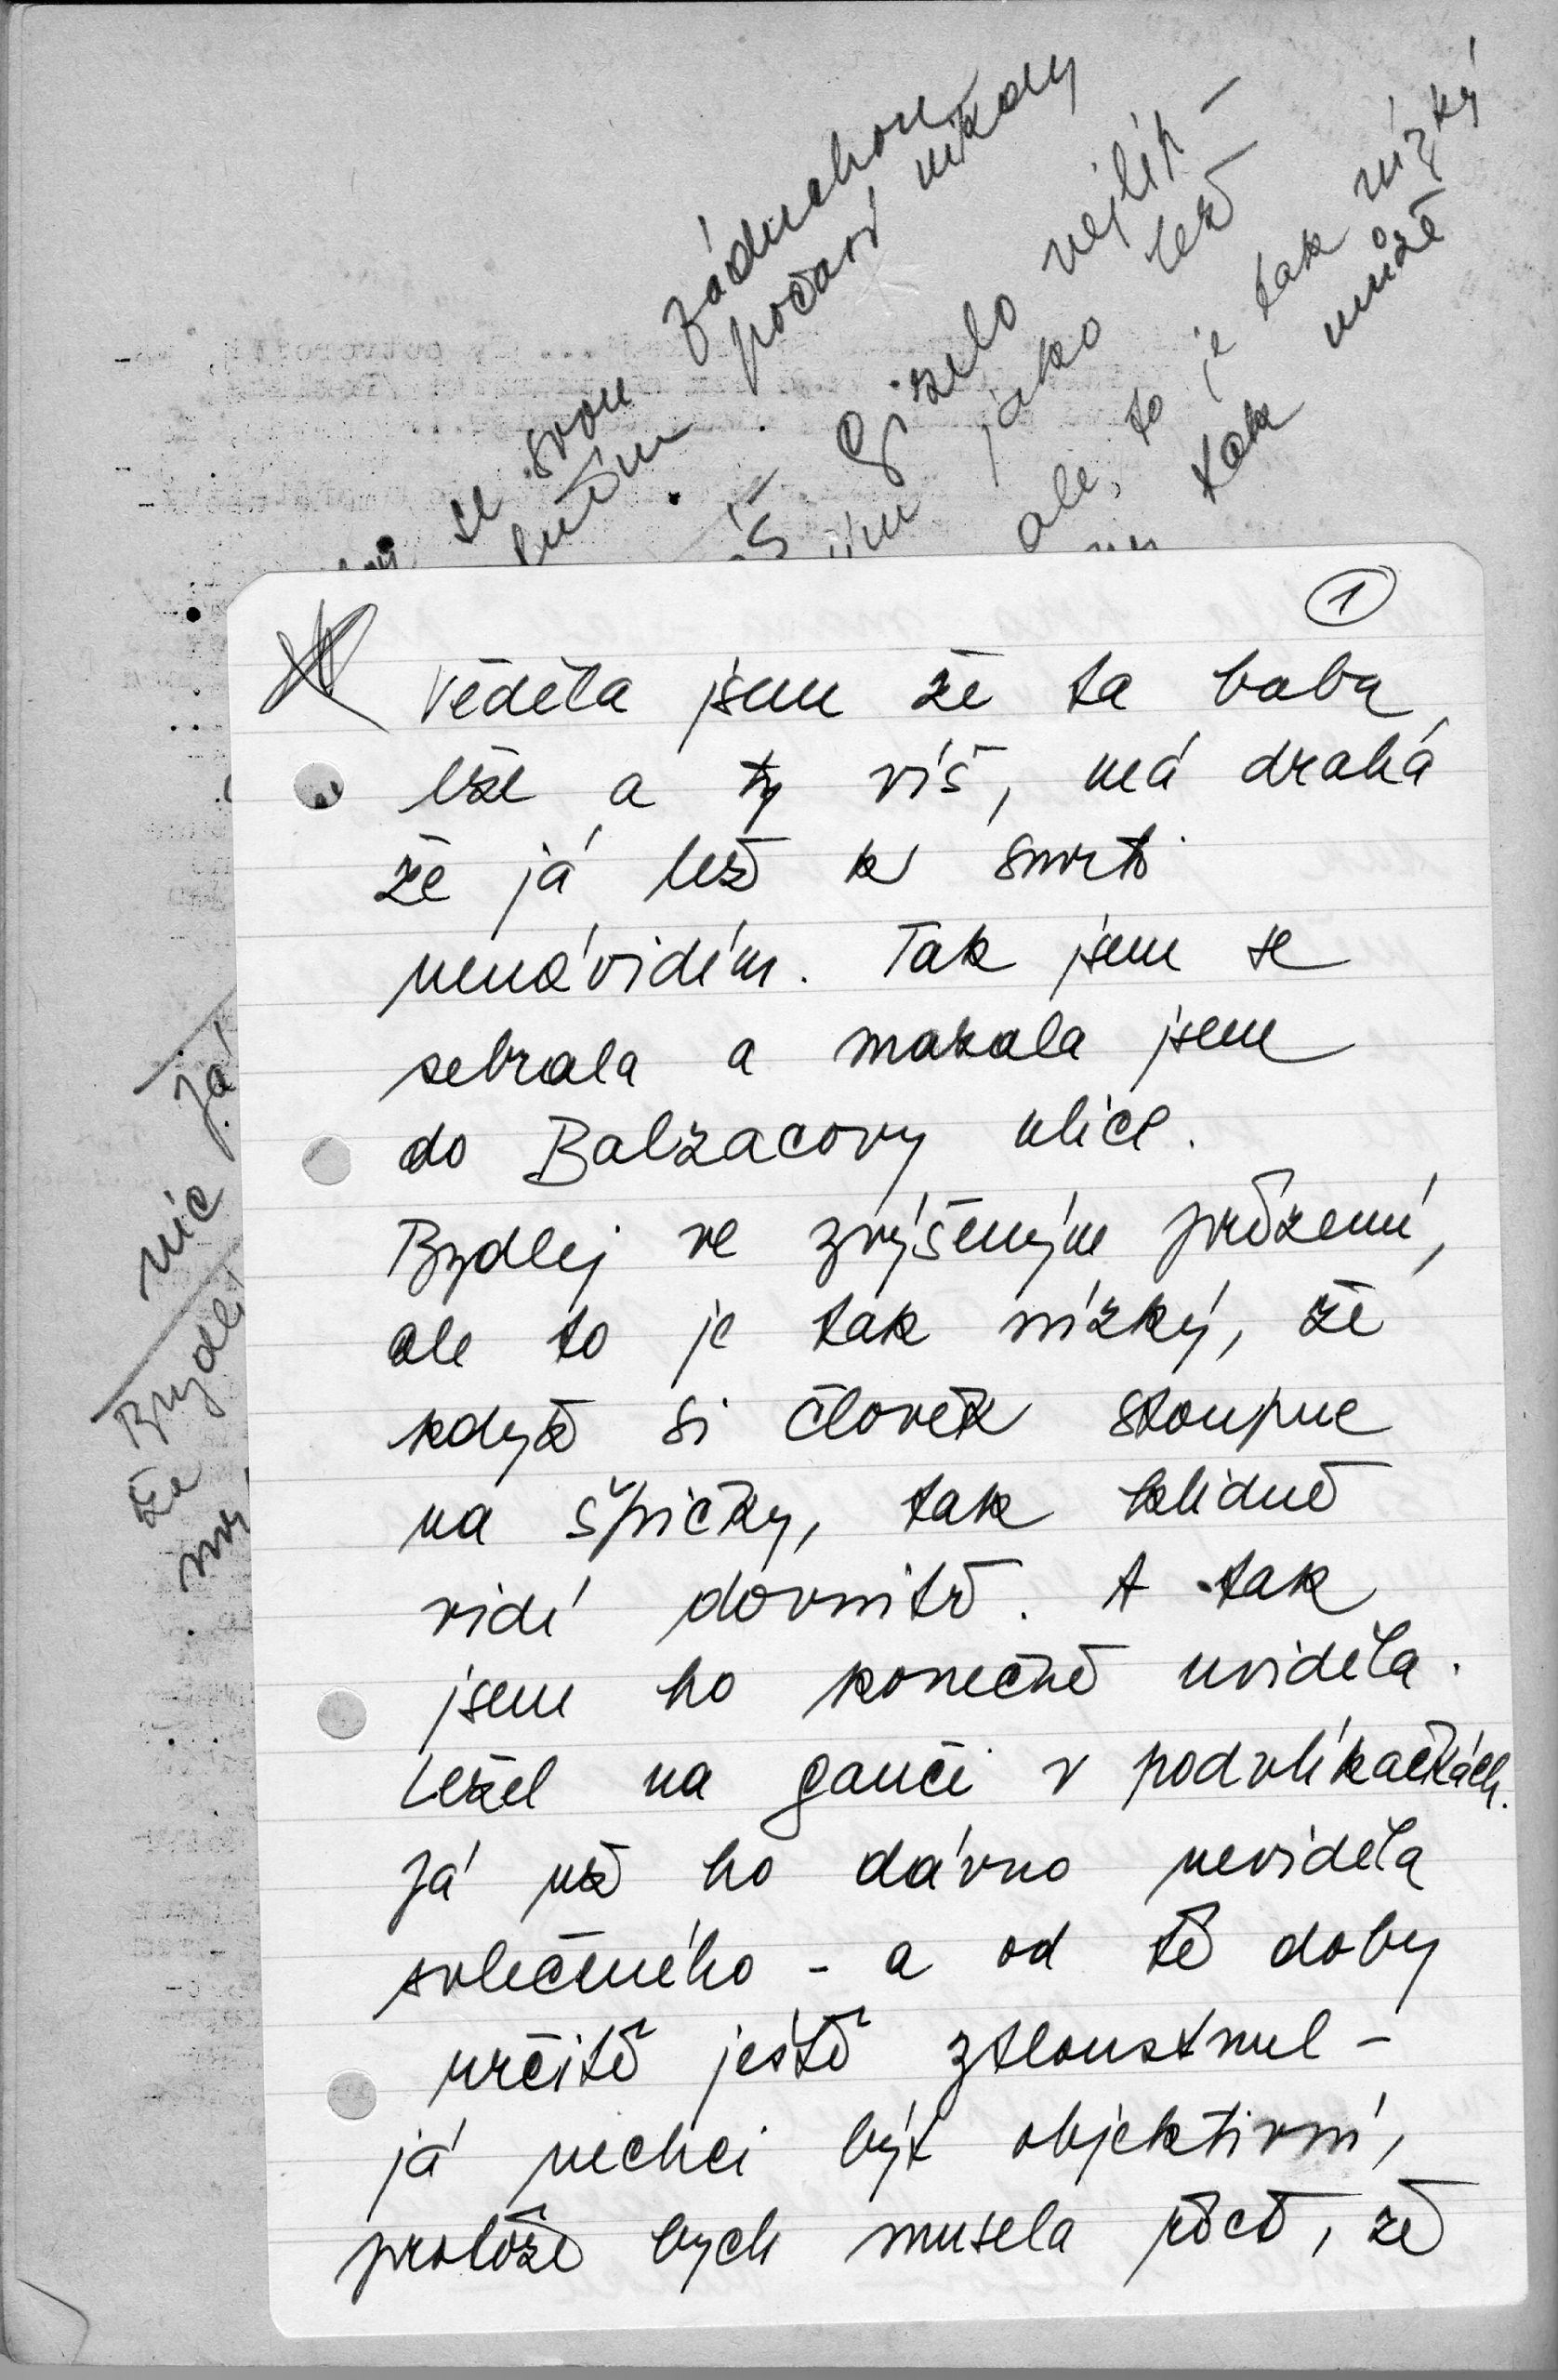 se svou záduchou
počasí nikdy
Gizelo nejlíp –
jako lež
ale, to je tak nízký
tak může
Já
nic
Bydlí
že
①
Věděla jsem že ta baba
lže a ty víš, má drahá
že já lež k smrti
nenávidím. Tak jsem se
sebrala a makala jsem
do Balzacovy ulice.
Bydlej ve zvýšeným přízemí,
ale to je tak nízký, že
když si člověk stoupne
na špičky, tak klidně
vidí dovnitř. A tak
jsem ho konečně uviděla.
Ležel na gauči v podvlíkačkách.
Já už ho dávno neviděla
svlečeného - a od tě doby
určitě ještě ztloustnul -
já nechci být objektivní,
protože bych musela říct, že